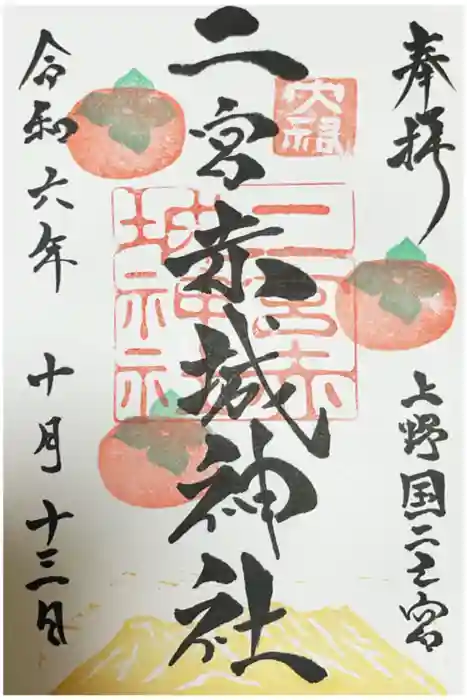 奉拝
上野国二之宮
二宮赤城神社
令和六年 十月 十三日
二宮赤
城神
社